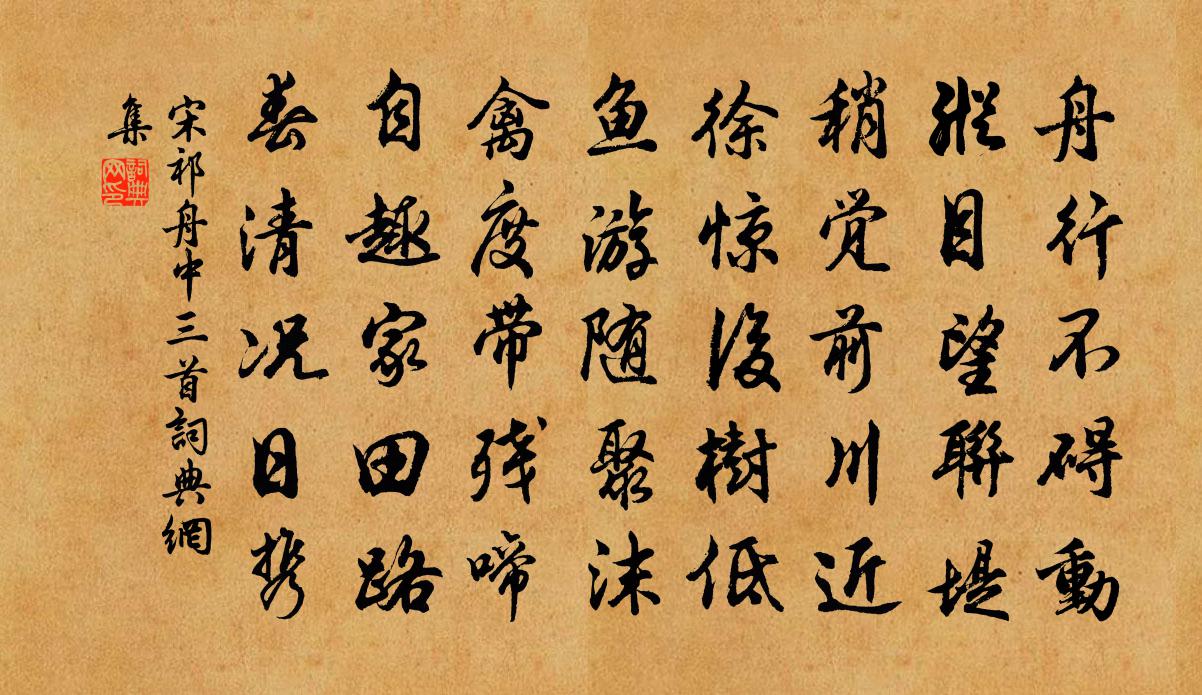 舟行不碍動
縱目望聯堤
稍觉前川近
徐惊後樹低
鱼游随聚沫
禽度带残啼
自趣家田路
春清况日携
宋祁舟中三首詞典網
集
詞典网印